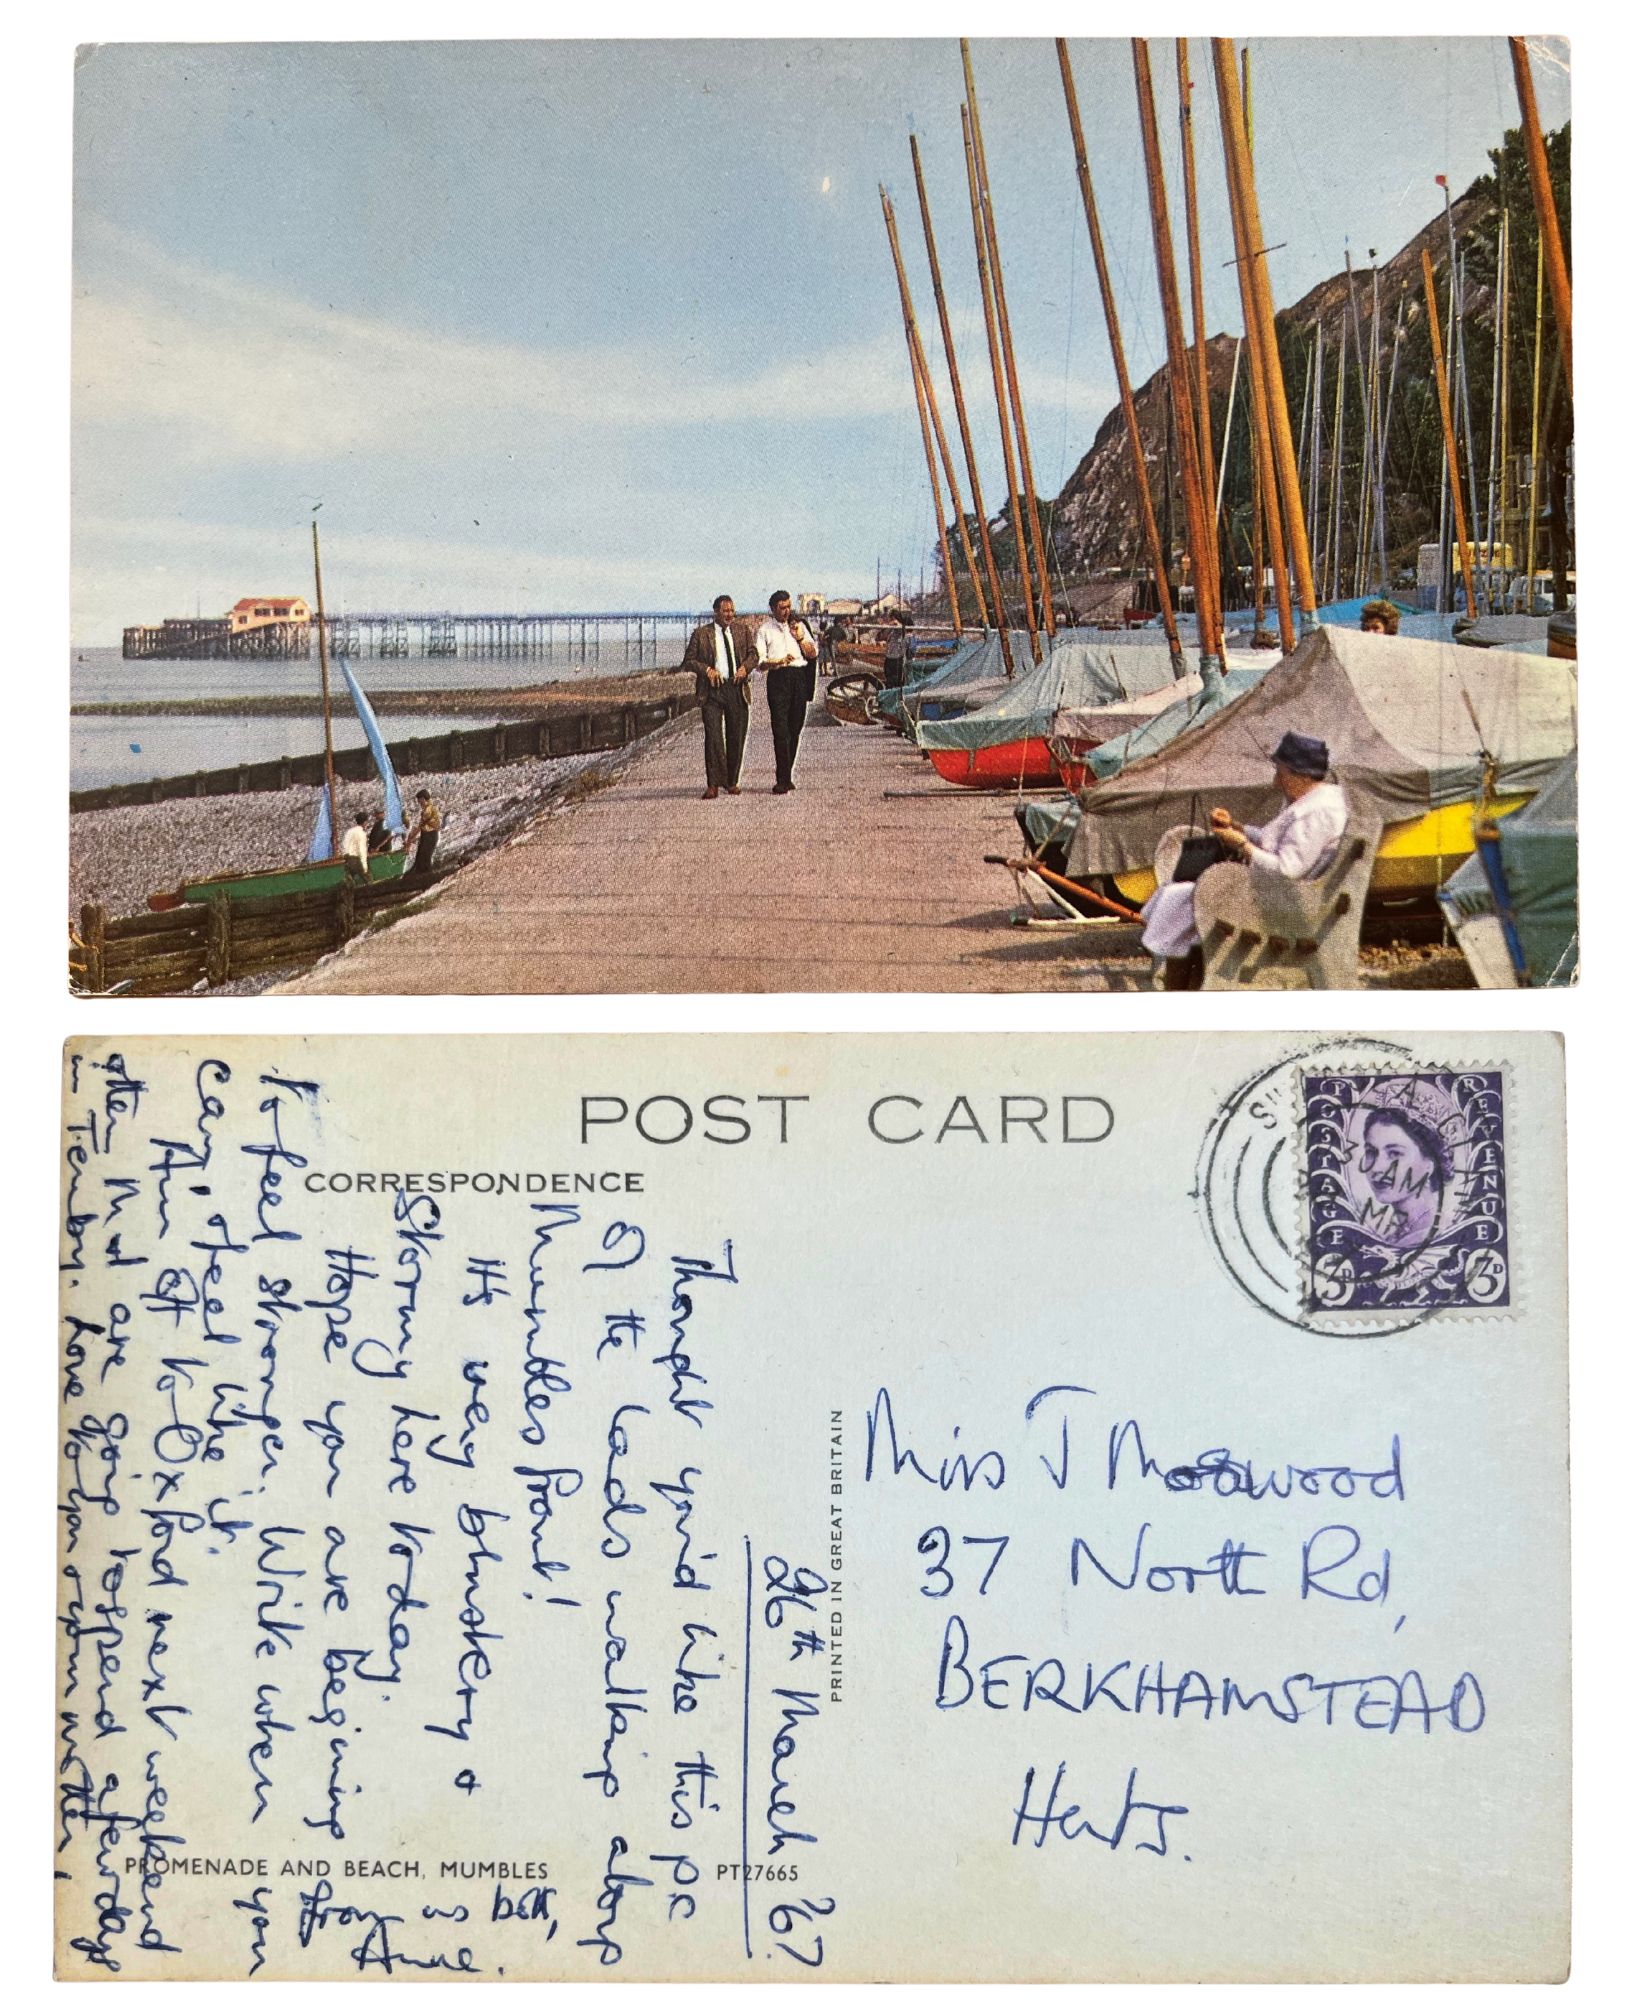 POST CARD
CORRESPONDENCE
26th March '67
Thought you'd like this pc
of the lads walking along
Mumbles front!
It's very blustery &
Stormy here today.
Hope you are begining
to feel stronger. Write when you
can, & feel like it.
Am off to Oxford next weekend
then M & are going to spend a few days
in Tenby. Love to you & your mother,
both,
Anne.
PRINTED IN GREAT BRITAIN
Miss J
37 North Rd,
BERKHAMSTEAD
Herts.
PROMENADE AND BEACH, MUMBLES
PT27665
POSTAGE
REVENUE
3D
3D
30 AM